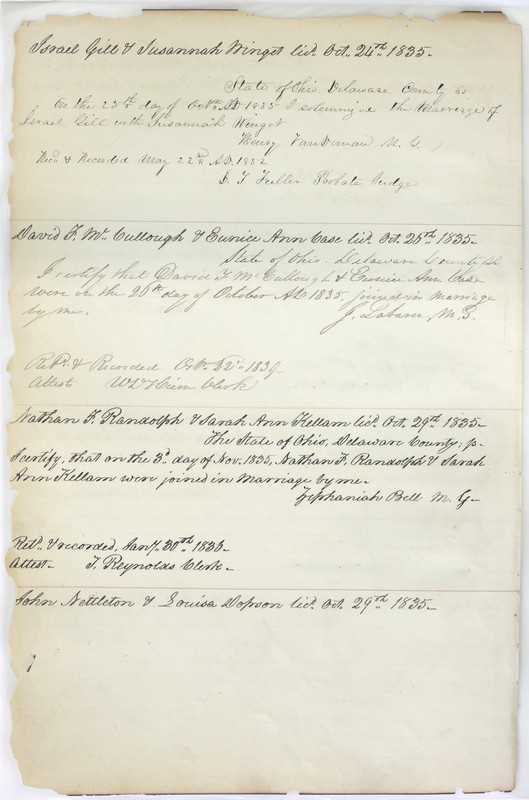 Israel Gill & Susannah Winget lic.d Oct. 24th 1835-
State of Ohio. Delaware County ss
On the 25th day of Octr. AD 1835 I solemnized the Marriage of
Israel Gill with Susannah Winget
Henry VanDeman M. G.
Recd. & Recorded May 22nd AD. 1852
D. T. Fuller Probate Judge
David F. Mc. Cullough & Eunice Ann Case lic.d Oct. 26th 1835-
State of Ohio. Delaware County ss
I certify that David F Mc Cullough & Eunice Ann Case
were on the 26th day of October AD 1835, joined in marriage
by me.
J. Labaree M. G.
Ret.d & Recorded Octr. 22d. 1839-
Attest Clerk
Nathan F. Randolph & Sarah Ann Kellam lic.d Oct. 29th 1835-
The State of Ohio, Delaware County, ss.
I certify, that on the 3d. day of Nov. 1835, Nathan F. Randolph & Sarah
Ann Kellam were joined in Marriage by me-
Zephaniah Bell M. G-
Ret.d & recorded, Jany. 30th 1836-
Attest- T. Reynolds Clerk-
John Nettleton & Louisa Dopson lic.d Oct. 29th 1835-